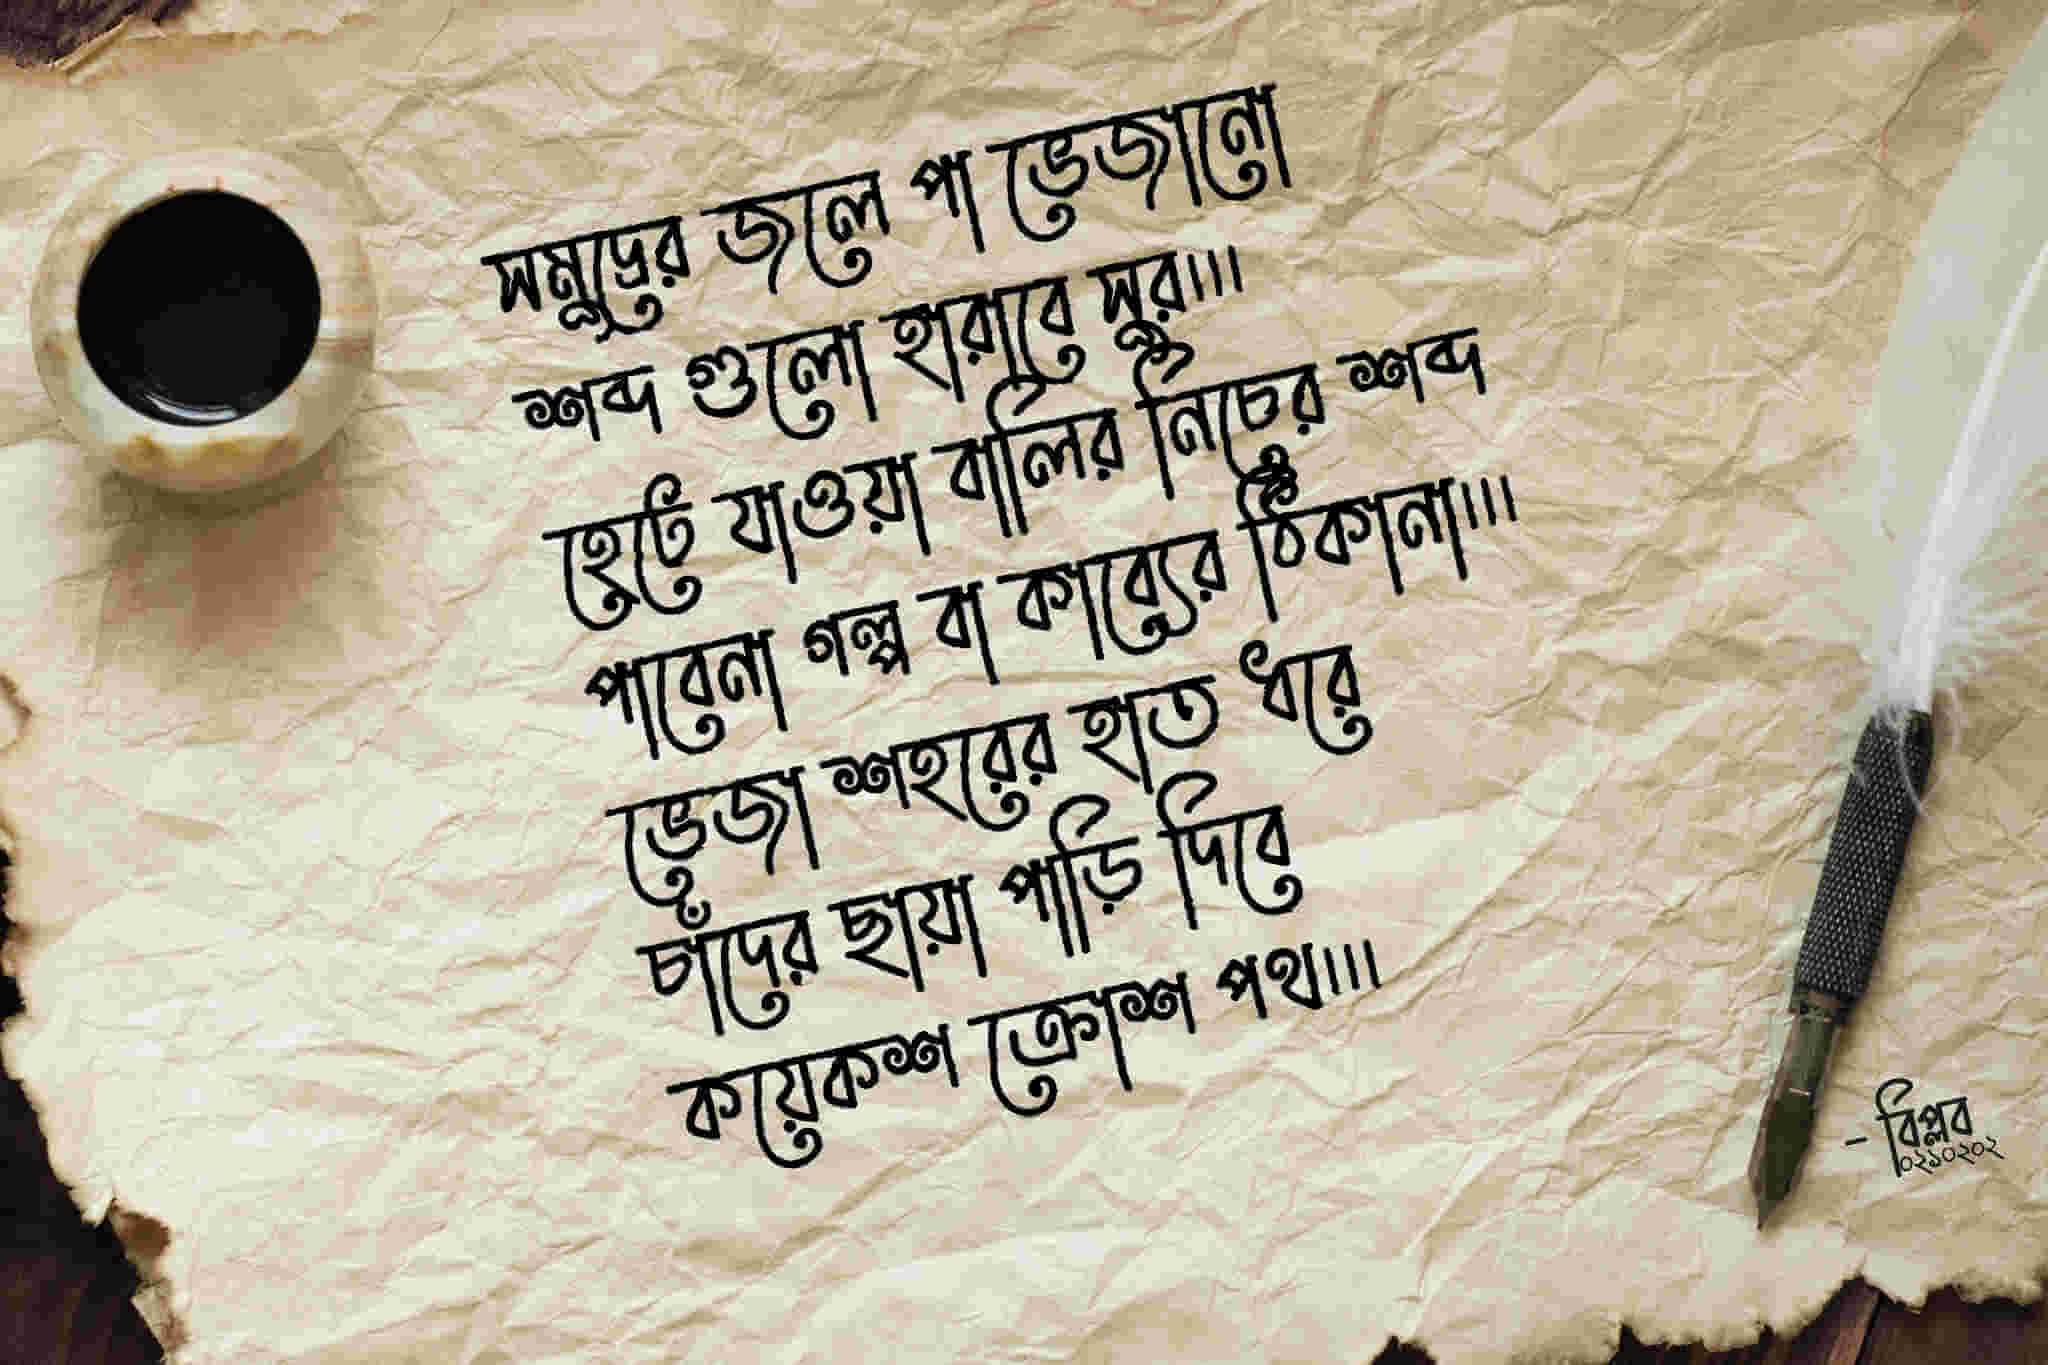 সমুদ্রের জলে পা ভেজানো
শব্দ গুলো হারাবে সুর।।।
হেটে যাওয়া বালির নিচের শব্দ
পাবেনা গল্প বা কাব্যের ঠিকানা।।।
ভেজা শহরের হাত ধরে
চাঁদের ছায়া পাড়ি দিবে
কয়েকশ ক্রোশ পথ।।।
- বিপ্লব
০২১০২০২